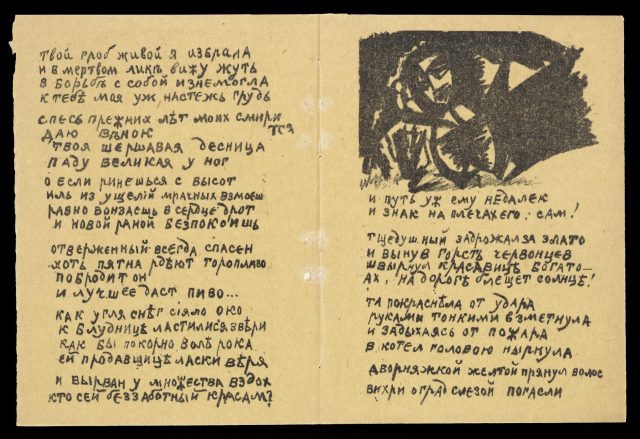 твой гроб живой я избрала
и в мертвом ликѣ вижу жуть
в борьбѣ с собой изнемогла
к тебѣ моя уж настежь грудь
спесь прежних лѣт моих смирится
даю вѣнок
твоя шершавая десница
паду великая у ног
о если ринешься с высот
иль из ущелий мрачных взмоешь
равно вонзаешь в сердце дрот
и новой раной безпокоишь
отверженный всегда спасен
хоть пятна рдѣют торопливо
побродит он
и лучшее даст пиво...
как угля снѣг сіяло око
к блудницѣ ластилися звѣри
как бы покорно волѣ рока
ей продавщицѣ ласки вѣря
и вырван у множества вздох
кто сей беззаботный красам?
и путь уж ему недалек
и знак на плечах его: сам!
тщедушный задрожал за злато
и вынув горсть червонцев
швырнул красавице богато—
ах, на дороге блещет солнце!
та покраснѣла от удара
руками тонкими взметнула
и задыхаясь от пожара
в котел головою нырнула
дворняжкой желтой прянул волос
вихри оград слезой погасли